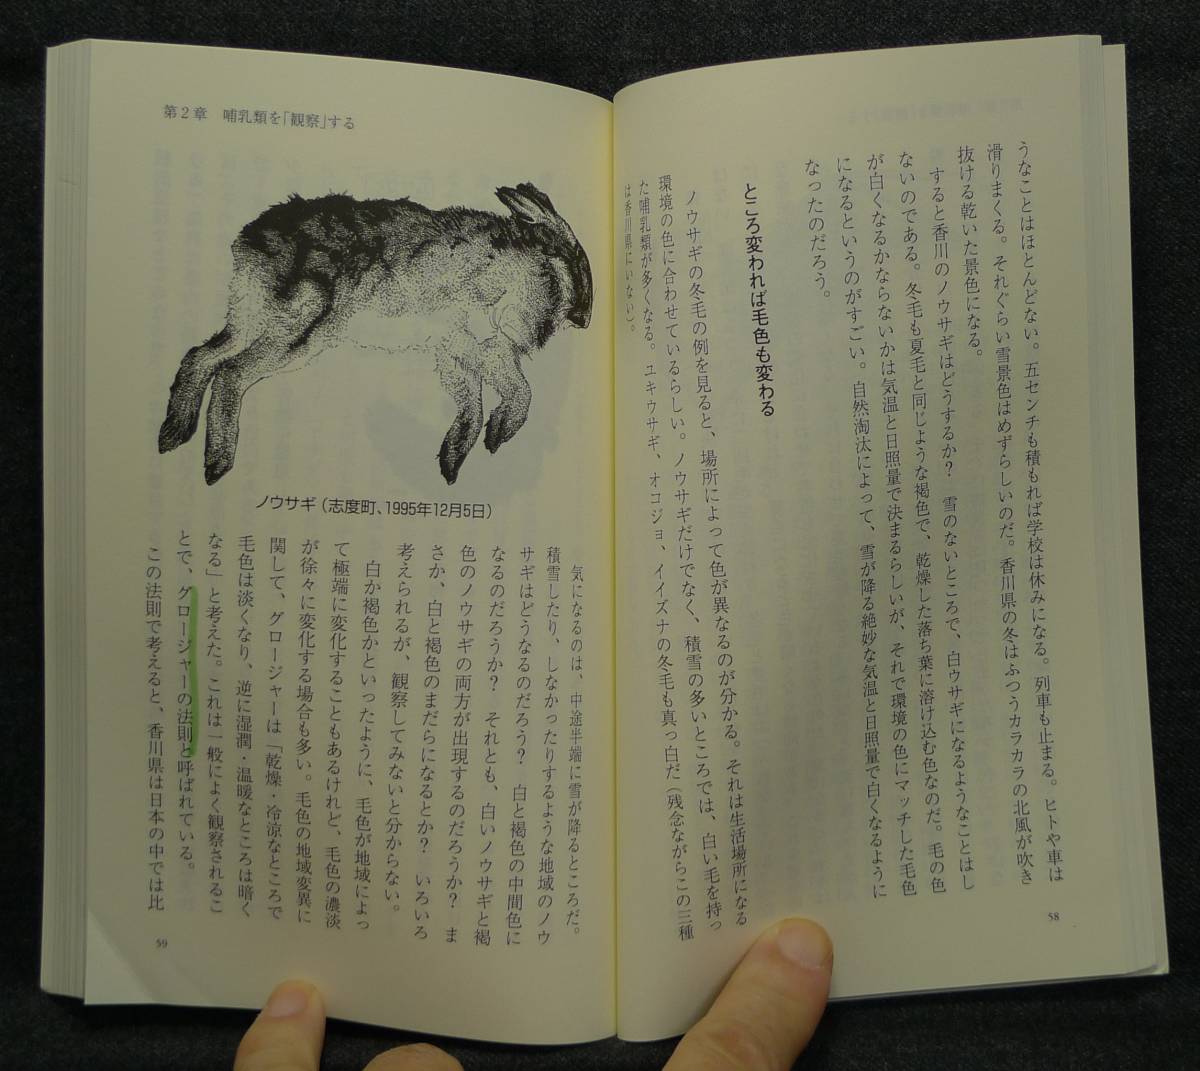 うなことはほとんどない。五センチも積もれば学校は休みになる。列車も止まる。ヒトや車は
滑りまくる。それぐらい雪景色はめずらしいのだ。香川県の冬はふつうカラカラの北風が吹き
抜ける乾いた景色になる。
すると香川のノウサギはどうするか？　雪のないところで、白ウサギになるようなことはし
ないのである。冬毛も夏毛と同じような褐色で、乾燥した落ち葉に溶け込む色なのだ。毛の色
が白くなるかならないかは気温と日照量で決まるらしいが、それで環境の色にマッチした毛色
になるというのがすごい。自然淘汰によって、雪が降る絶妙な気温と日照量で白くなるように
なったのだろう。
ところ変われば毛色も変わる
ノウサギの冬毛の例を見ると、場所によって色が異なるのが分かる。それは生活場所になる
環境の色に合わせているらしい。ノウサギだけでなく、積雪の多いところでは、白い毛を持っ
た哺乳類が多くなる。ユキウサギ、オコジョ、イイズナの冬毛も真っ白だ（残念ながらこの三種
は香川県にいない）。
58
第２章　哺乳類を「観察」する
ノウサギ（志度町、1995年12月5日）
気になるのは、中途半端に雪が降るところだ。
積雪したり、しなかったりするような地域のノウ
サギはどうなるのだろう？　白と褐色の中間色に
なるのだろうか？　それとも、白いノウサギと褐
色のノウサギの両方が出現するのだろうか？　ま
さか、白と褐色のまだらになるとか？　いろいろ
考えられるが、観察してみないと分からない。
白か褐色かといったように、毛色が地域によっ
て極端に変化することもあるけれど、毛色の濃淡
が徐々に変化する場合も多い。毛色の地域変異に
関して、グロージャーは「乾燥・冷涼なところで
毛色は淡くなり、逆に湿潤・温暖なところは暗く
なる」と考えた。これは一般によく観察されるこ
とで、グロージャーの法則と呼ばれている。
この法則で考えると、香川県は日本の中では比
59